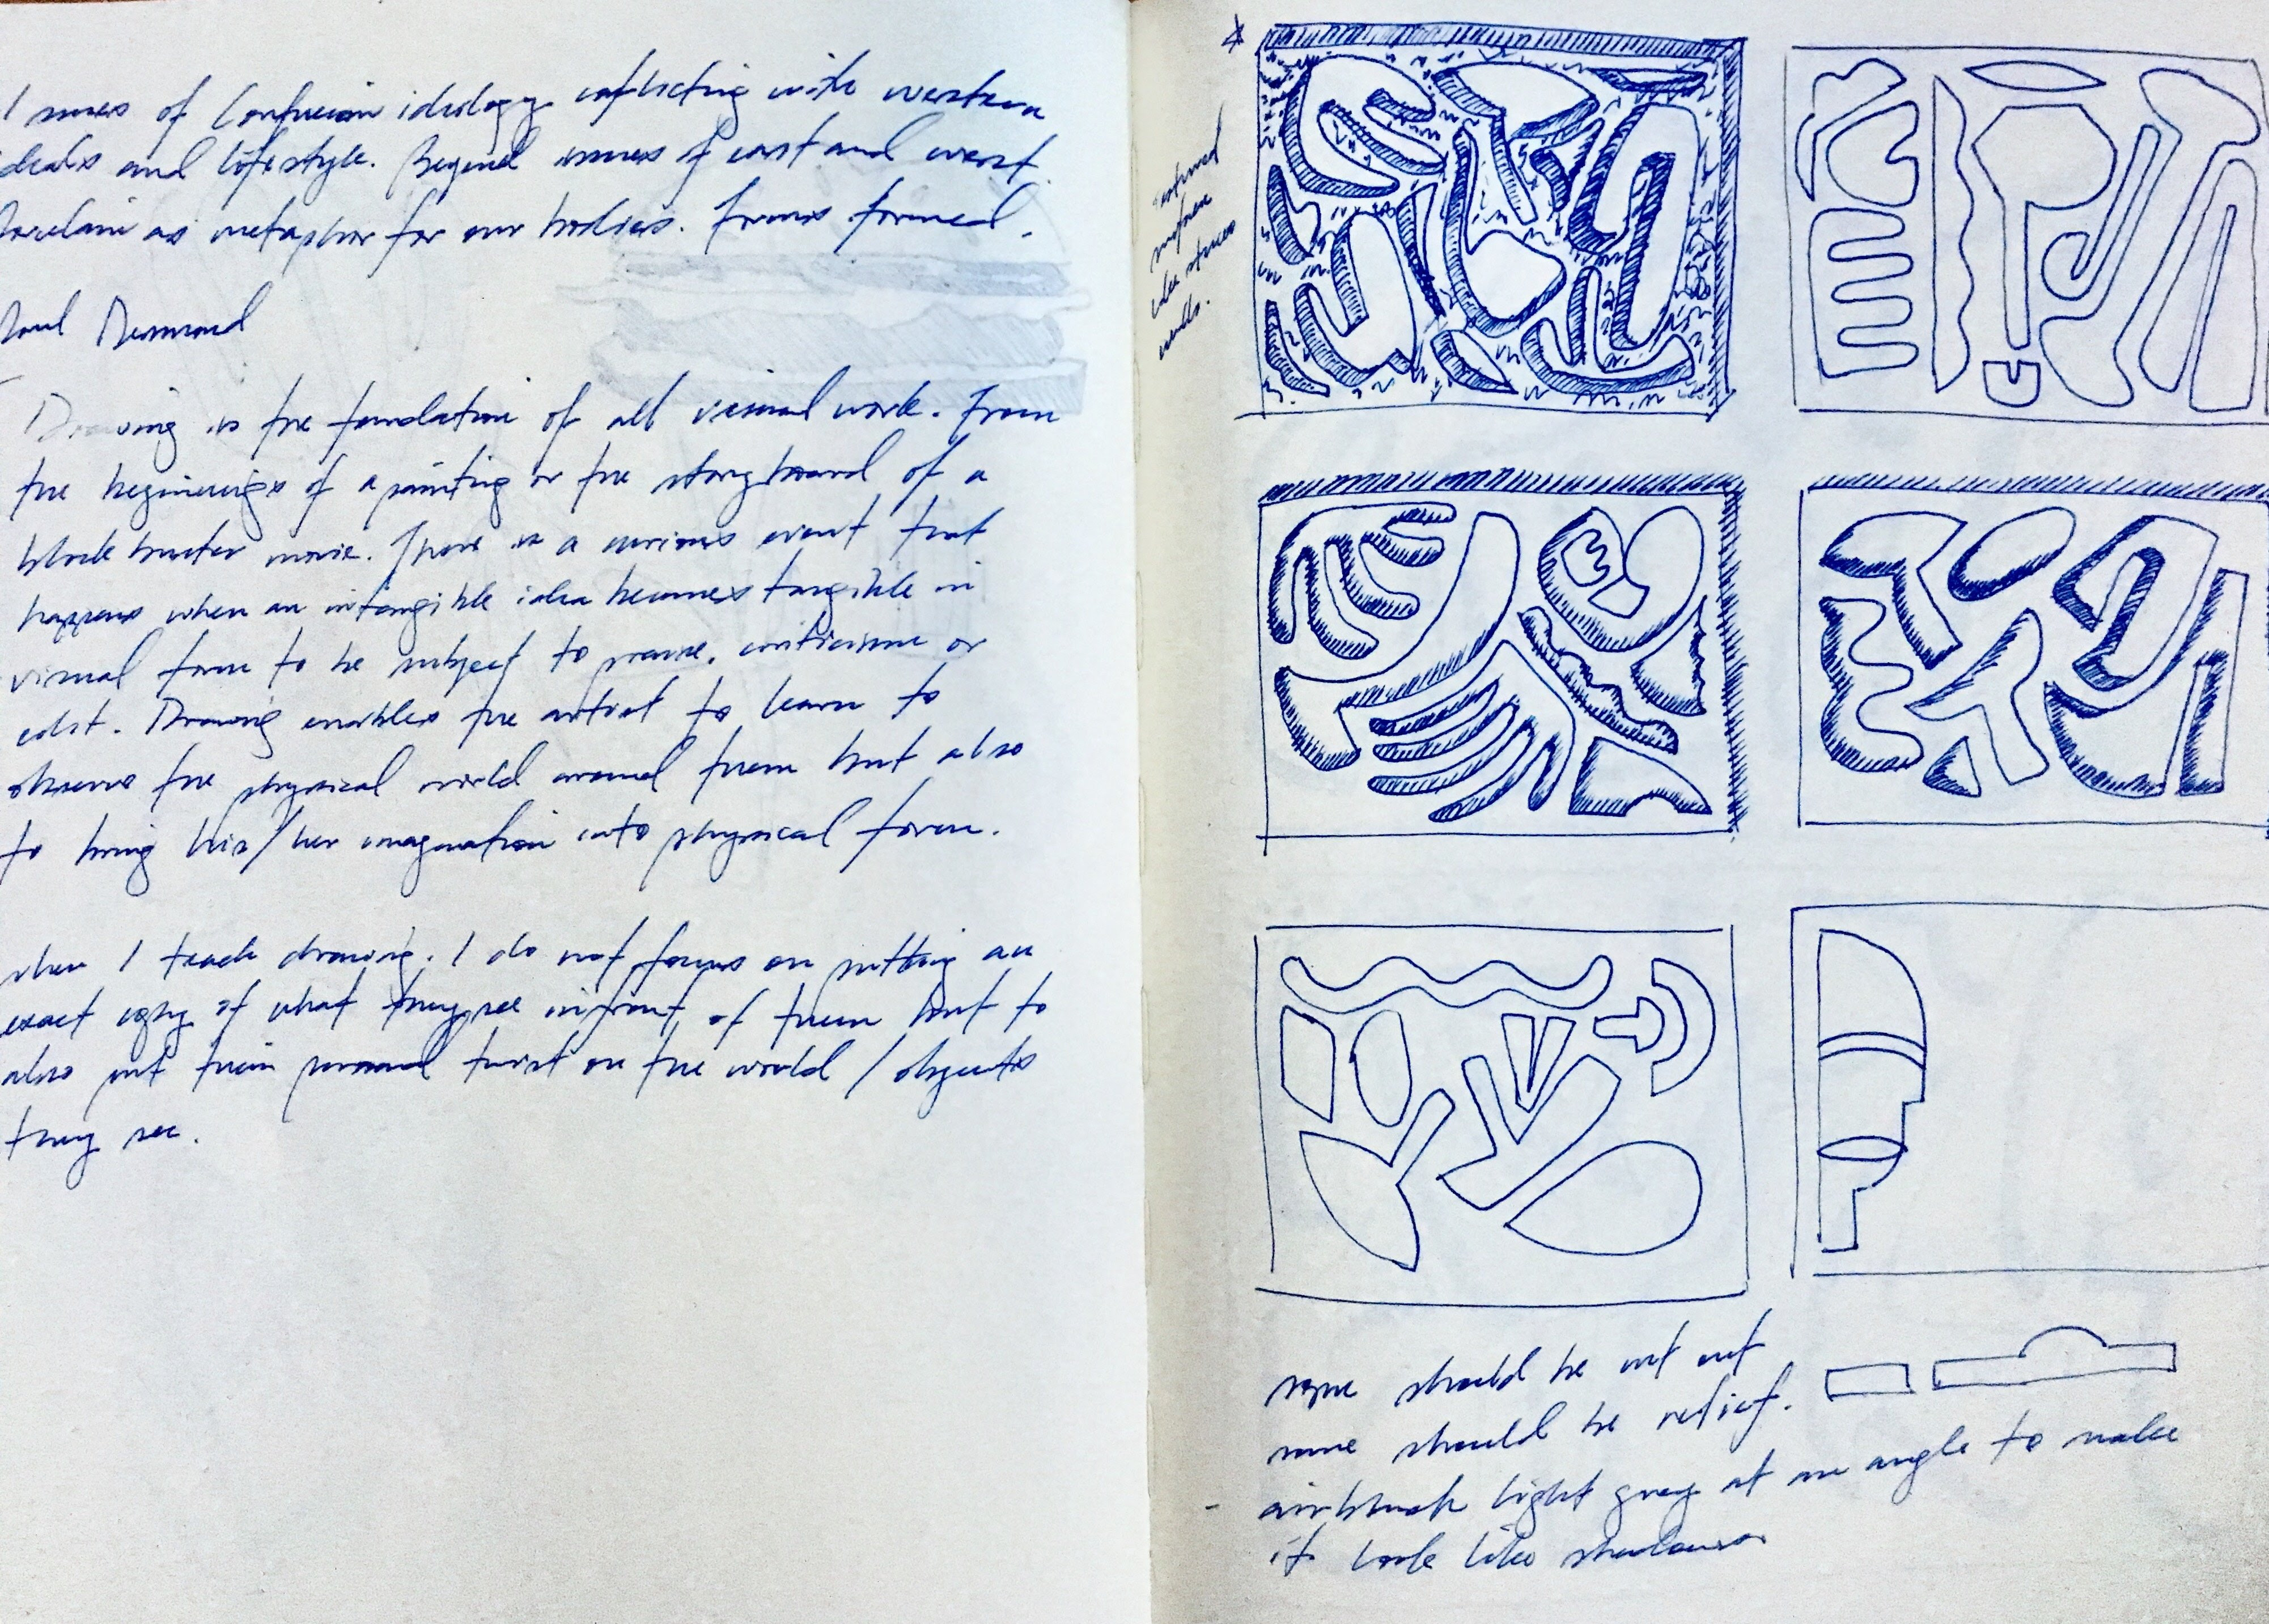 Issues of Confucian ideology conflicting with western
ideals and lifestyle. Beyond issues of east and west.
Porcelain as metaphor for our bodies. Forms formed.
Paul Desmond
Drawing is the foundation of all visual work. From
the beginnings of a painting or the storyboard of a
block buster movie. There is a curious event that
happens when an intangible idea becomes tangible in
visual form to be subject to praise, criticism or
edit. Drawing enables the artist to learn to
observe the physical world around them but also
to bring his/her imagination into physical form.
when I teach drawing. I do not focus on putting an
exact copy of what they see infront of them but to
also put their personal twist on the world / objects
they see.
textured
surface
like stucco
walls.
some should be cut out
some should be relief.
airbrush light gray at an angle to make
it look like shadows